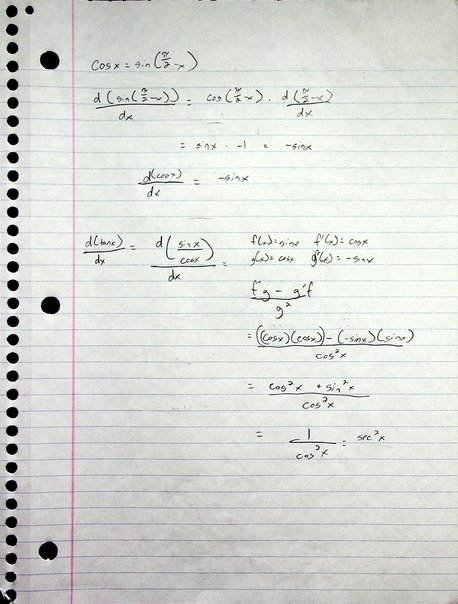 cosx = sin(π/2 - x)
d(sin(π/2 - x))/dx = cos(π/2 - x) · d(π/2 - x)/dx
= sinx · -1 = -sinx
d(cosx)/dx = -sinx
d(tanx)/dx = d(sinx/cosx)/dx =
f(x)=sinx f'(x)=cosx
g(x)=cosx g'(x)=-sinx
f'g - g'f/g²
= ((cosx)(cosx)) - (-sinx)(sinx)/cos²x
= cos²x + sin²x/cos²x
= 1/cos²x = sec²x